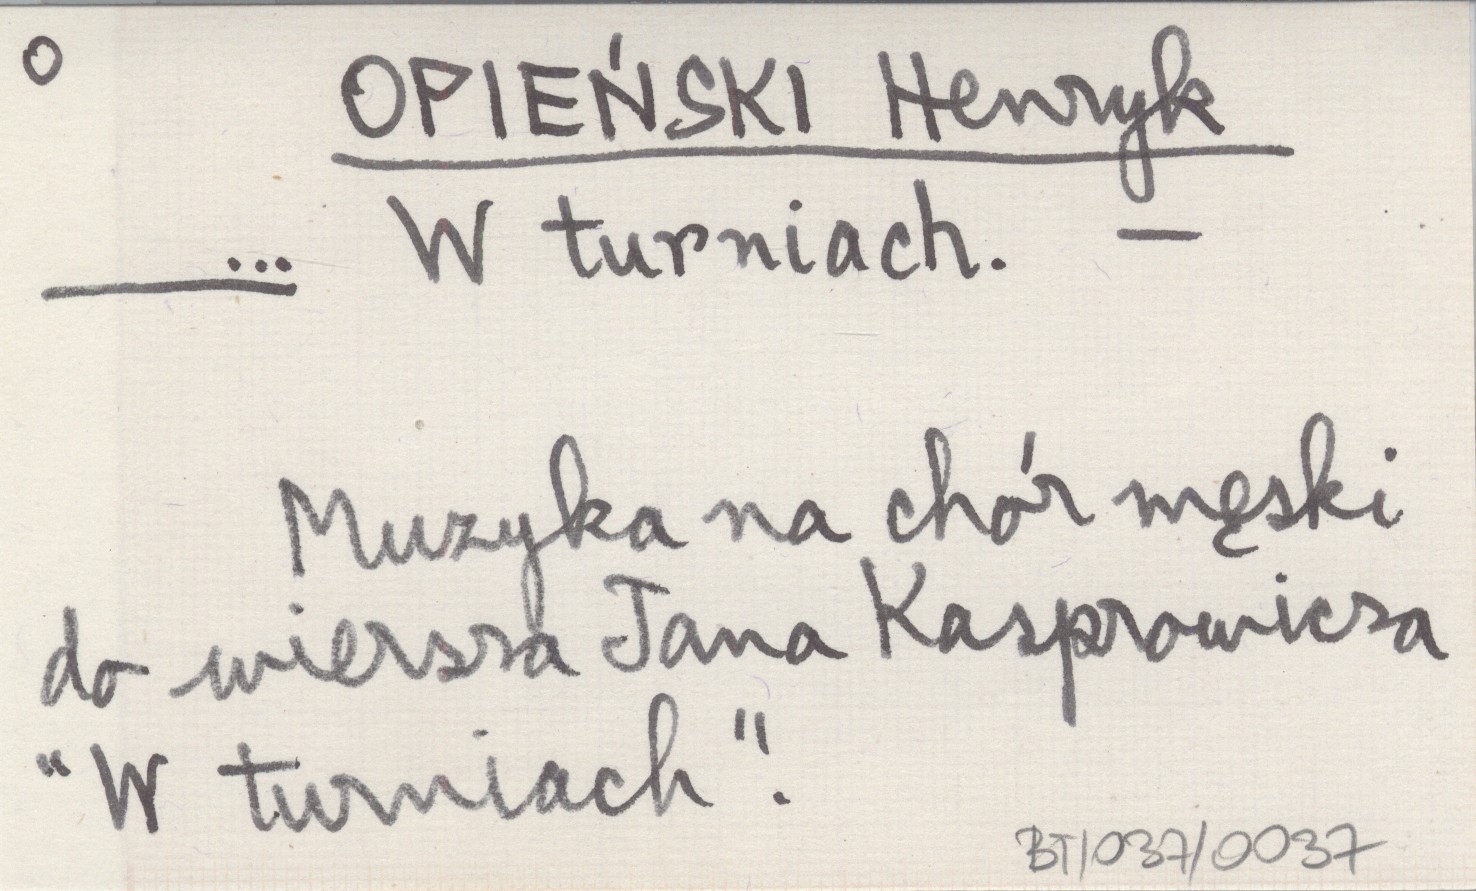 O
OPIEŃSKI Henryk
... W turniach. —
Muzyka na chór męski
do wiersza Jana Kasprowicza
"W turniach".
BT/037/0037